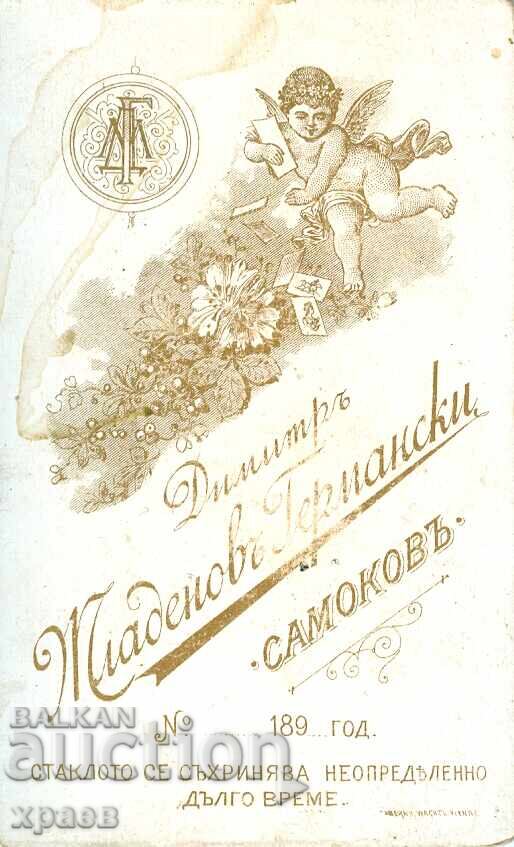 Димитръ
Младеновъ Германски
·САМОКОВЪ·
№ ........ 189... ГОД.
СТАКЛОТО СЕ СЪХРИНЯВА НЕОПРЕДѢЛЕННО
ДЪЛГО ВРЕМЕ.
BALKAN
auction
храев